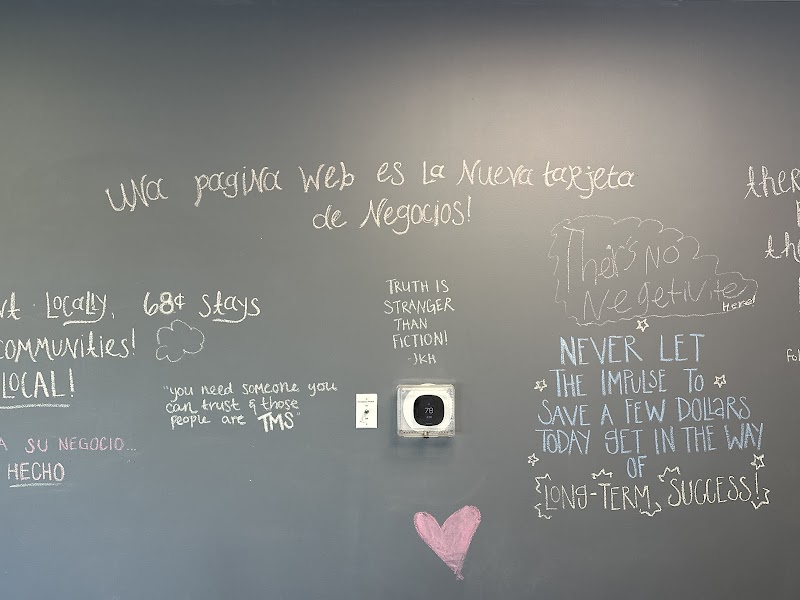 Una pagina web es la nueva tarjeta
de negocios!
ther
th
Ther's NO
Negetivite
Here!
LOCALLY, 68¢ stays
communities!
LOCAL!
A SU NEGOCIO...
HECHO
"you need someone you
can trust & those
people are TMS"
TRUTH IS
STRANGER
THAN
FICTION!
-JKH
78
NEVER LET
THE IMPULSE TO
SAVE A FEW DOLLARS
TODAY GET IN THE WAY
OF
LONG-TERM SUCCESS!